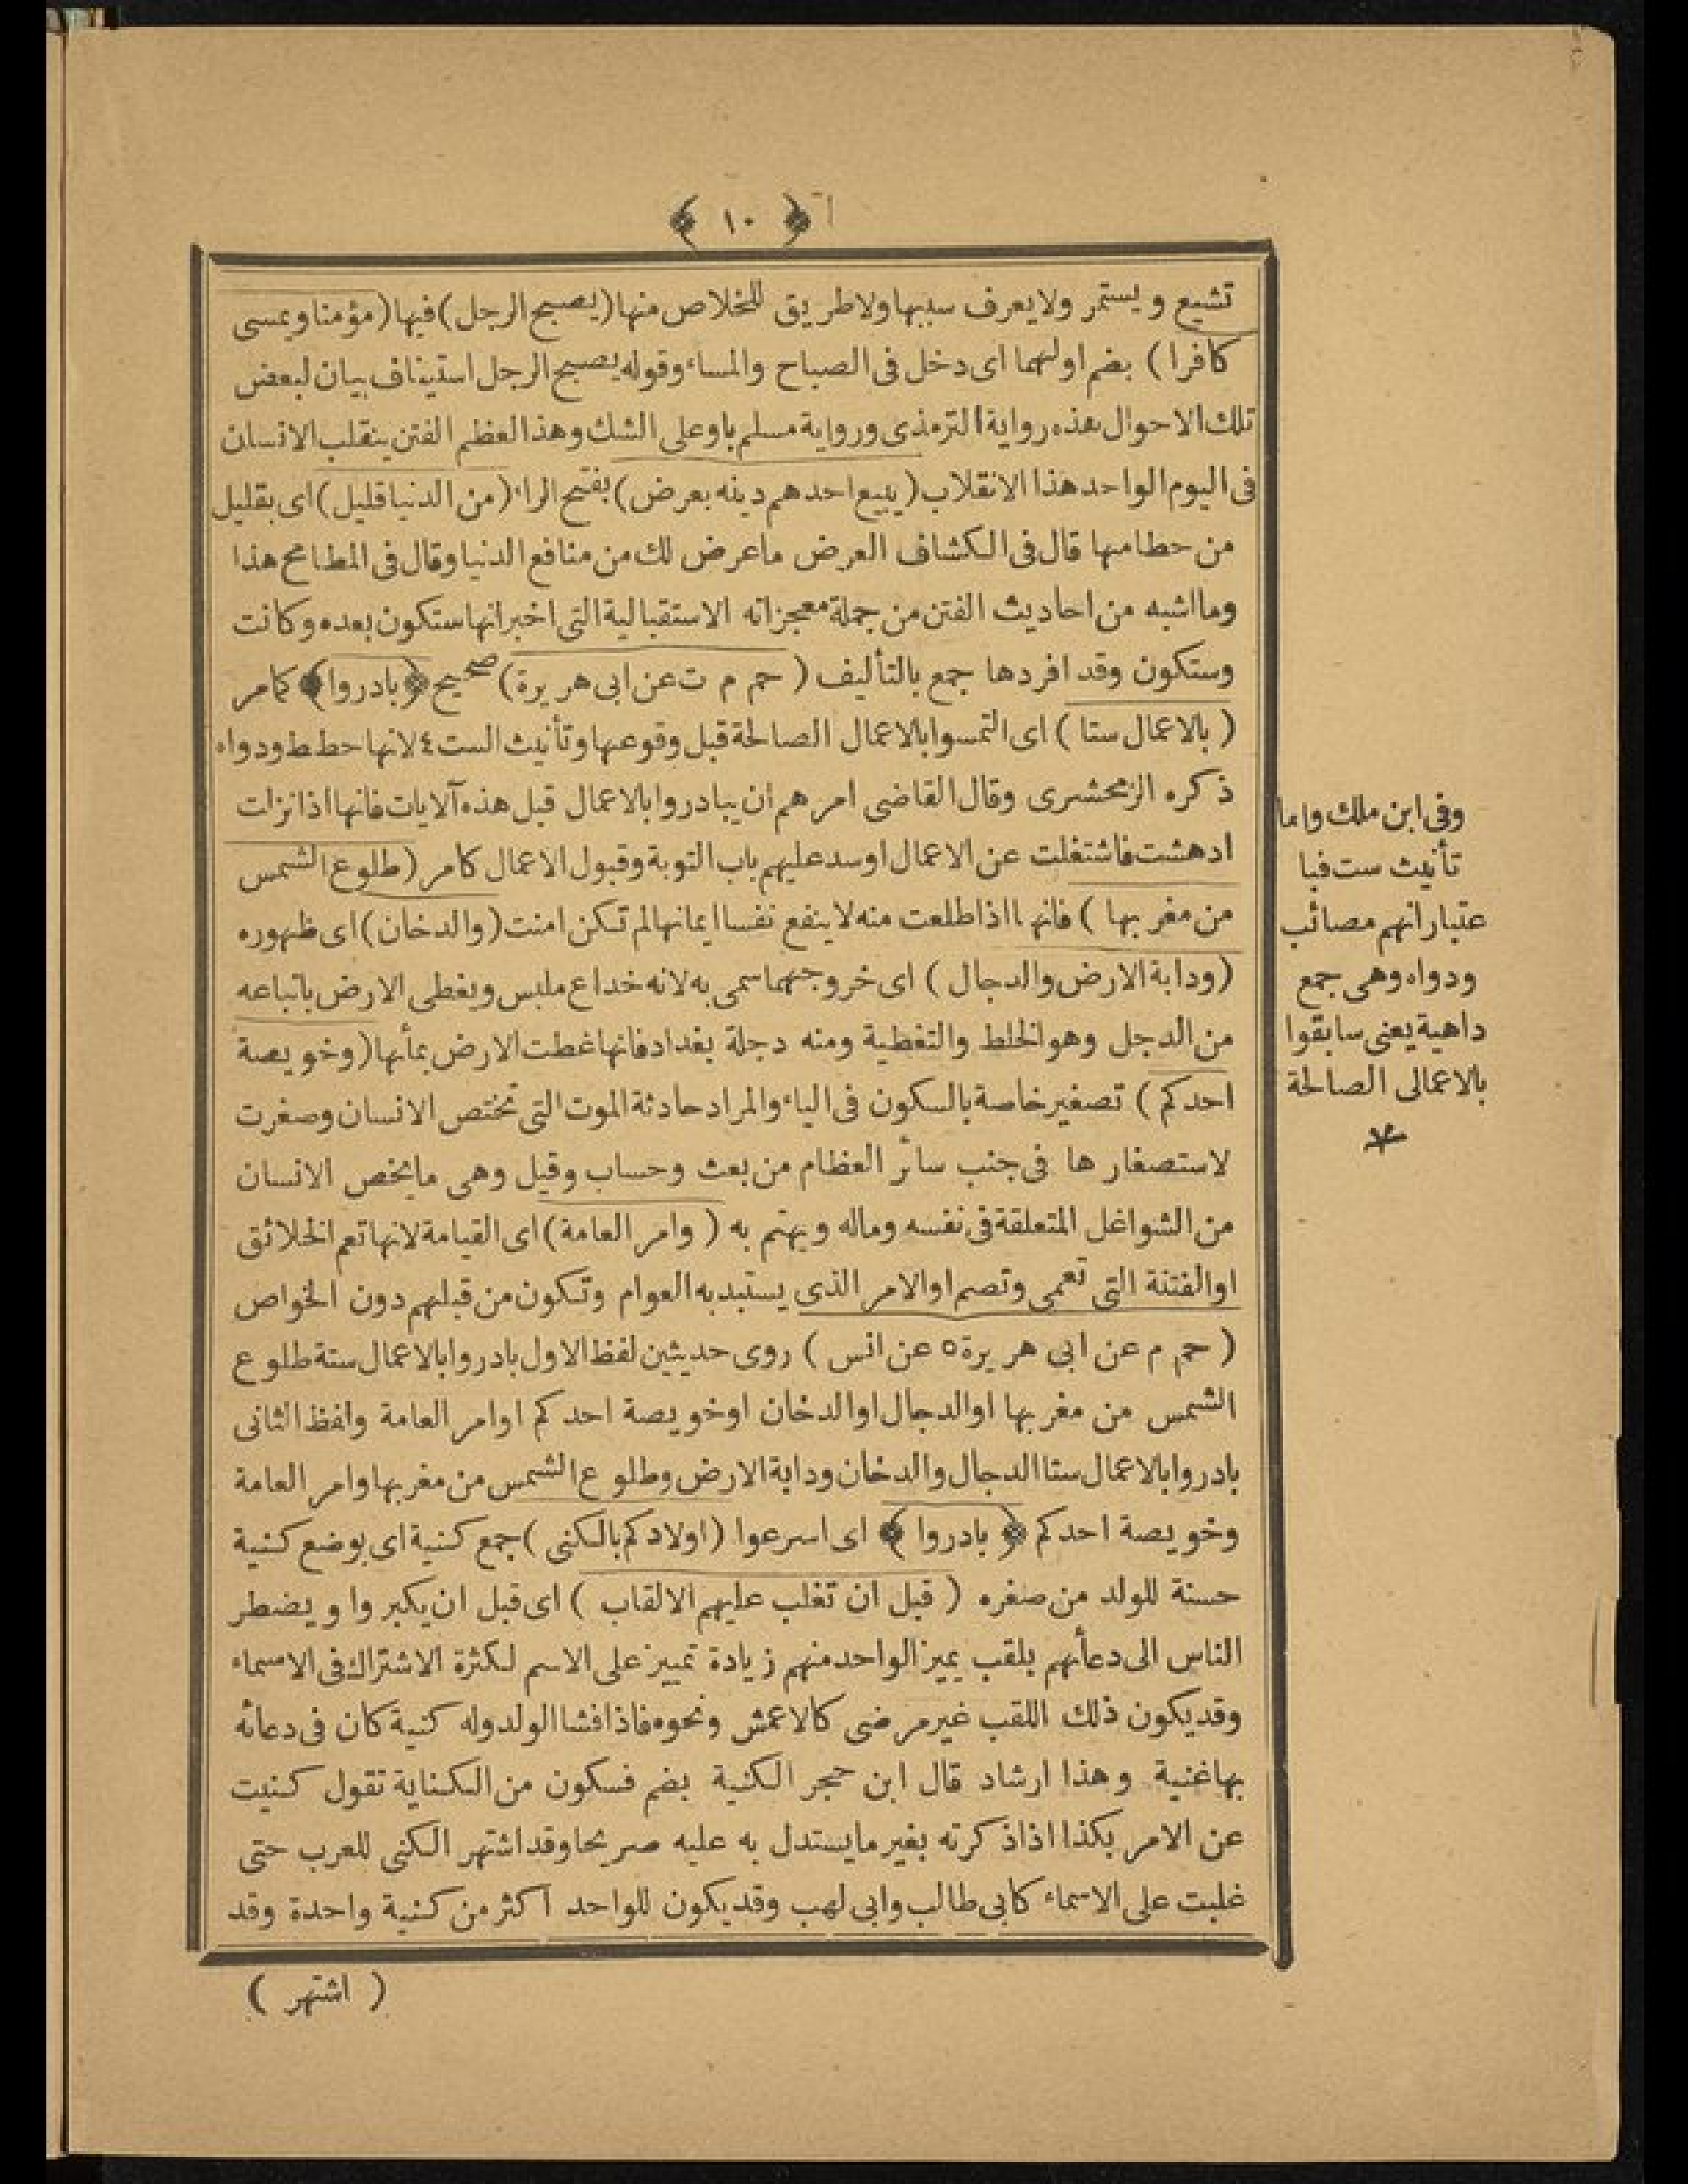 ﴿ ١٠ ﴾
تشيع ويستمر ولايعرف سببها ولاطريق للخلاص منها (يصبح الرجل) فيها (مؤمنا ويمسى
كافرا) بضم اولهما اى دخل فى الصباح والمساء وقوله يصبح الرجل استيناف بيان لبعض
تلك الاحوال هذه رواية الترمذى ورواية مسلم باو على الشك وهذا لعظم الفتن ينقلب الانسان
فى اليوم الواحد هذا الانقلاب (يبيع احدهم دينه بعرض) بفتح الراء (من الدنيا قليل) اى بقليل
من حطامها قال فى الكشاف العرض ماعرض لك من منافع الدنيا وقال فى المطامح هذا
ومااشبه من احاديث الفتن من جملة معجزاته الاستقبالية التى اخبر انها ستكون بعده وكانت
وستكون وقد افردها جمع بالتأليف (حم م ت عن ابى هريرة) صحيح ﴿بادروا﴾ كامر
(بالاعمال ستا) اى التمسوا بالاعمال الصالحة قبل وقوعها وتأنيث الست ٤ لانها حطط ودواه
ذكره الزمحشرى وقال القاضى امرهم ان يبادروا بالاعمال قبل هذه آلايات فانها اذا نزلت
ادهشت فاشتغلت عن الاعمال اوسد عليهم باب التوبة وقبول الاعمال كامر (طلوع الشمس
من مغربها) فانها اذا طلعت منه لاينفع نفسا ايمانها لم تكن امنت (والدخان) اى ظهوره
(ودابة الارض والدجال) اى خروجهما سمى به لانه خداع ملبس ويغطى الارض باتباعه
من الدجل وهو الخلط والتغطية ومنه دجلة بغداد فانها غطت الارض بمأها (وخويصة
احدكم) تصغير خاصة بالسكون فى الياء والمراد حادثة الموت التى تختص الانسان وصغرت
لاستصغارها فى جنب سائر العظام من بعث وحساب وقيل وهى مايخص الانسان
من الشواغل المتعلقة فى نفسه وماله ويهتم به (وامر العامة) اى القيامة لانها تعم الخلائق
اوالفتنة التى تعمى وتصم اوالامر الذى يستبد به العوام وتكون من قبلهم دون الخواص
(حم م عن ابى هريرة ٥ عن انس) روى حديثين لفظ الاول بادروا بالاعمال ستة طلوع
الشمس من مغربها اوالدجال اوالدخان اوخويصة احدكم اوامر العامة ولفظ الثانى
بادروا بالاعمال ستا الدجال والدخان ودابة الارض وطلوع الشمس من مغربها وامر العامة
وخويصة احدكم ﴿بادروا﴾ اى اسرعوا (اولادكم بالكنى) جمع كنية اى بوضع كنية
حسنة للولد من صغره (قبل ان تغلب عليهم الالقاب) اى قبل ان يكبروا ويضطر
الناس الى دعائهم بلقب يميز الواحد منهم زيادة تمييز على الاسم لكثرة الاشتراك فى الاسماء
وقد يكون ذلك اللقب غير مرضى كالاعمش ونحوه فاذا فشا الولد وله كنية كان فى دعائه
بها غنية وهذا ارشاد قال ابن حجر الكنية بضم فسكون من الكناية تقول كنيت
عن الامر بكذا اذا ذكرته بغير مايستدل به عليه صريحا وقد اشتهر الكنى للعرب حتى
غلبت على الاسماء كابى طالب وابى لهب وقد يكون للواحد اكثر من كنية واحدة وقد
(اشتهر)
وفى ابن ملك واما
تأنيث ست فبا
عتبار انهم مصائب
ودواه وهى جمع
داهية يعنى سابقوا
بالاعمالى الصالحة